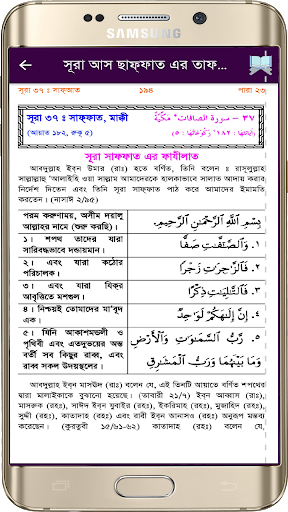 SAMSUNG
সূরা আস ছাফ্ফাত এর তাফ...
সূরা ৩৭ ঃ সাফ্ফাত ১৯৪ পারা ২৩
সূরা ৩৭ ঃ সাফ্ফাত, মাক্কী
(আয়াত ১৮২, রুকু ৫)
٣٧ - سورة الصافات، مَكِّيَّةٌ
সূরা সাফফাত এর ফাযীলাত
আবদুল্লাহ ইব্ন উমার (রাঃ) হতে বর্ণিত, তিনি বলেন ঃ রাসূলুল্লাহ
সাল্লাল্লাহু 'আলাইহি ওয়া সাল্লাম আমাদেরকে হালকাভাবে সালাত আদায় করার
নির্দেশ দিতেন এবং তিনি সূরা সাফফাত পাঠ করে আমাদের ইমামতি
করতেন। (নাসাঈ ২/৯৫)
পরম করুণাময়, অসীম দয়ালু
আল্লাহর নামে (শুরু করছি)।
بِسْمِ اللَّهِ الرَّحْمَٰنِ الرَّحِيمِ.
১। শপথ তাদের যারা
সারিবদ্ধভাবে দন্ডায়মান।
١. وَالصَّٰٓفَّٰتِ صَفًّا
২। এবং যারা কঠোর
পরিচালক।
٢. فَالزَّٰجِرَٰتِ زَجْرًا
৩। এবং যারা যিক্র
আবৃত্তিতে মশগুল।
٣. فَالتَّٰلِيَٰتِ ذِكْرًا
৪। নিশ্চয়ই তোমাদের মা'বূদ
এক।
٤. إِنَّ إِلَٰهَكُمْ لَوَٰحِدٌ
৫। যিনি আকাশমন্ডলী ও
পৃথিবী এবং এতদুভয়ের অন্ত
র্বর্তী সব কিছুর রাব্ব, এবং
রাব্ব সকল উদয়স্থলের।
٥. رَّبُّ السَّمَٰوَٰتِ وَالْأَرْضِ
وَمَا بَيْنَهُمَا وَرَبُّ الْمَشَٰرِقِ
আবদুল্লাহ ইব্ন মাসউদ (রাঃ) বলেন যে, এই তিনটি আয়াতে বর্ণিত শপথের
দ্বারা মালাইকাকে বুঝানো হয়েছে। (তাবারী ২১/৭) ইব্ন আব্বাস (রাঃ),
মাসরুক (রহঃ), সাঈদ ইব্ন যুবাইর (রহঃ), ইকরিমাহ (রহঃ), মুজাহিদ (রহঃ),
সুদ্দী (রহঃ), কাতাদাহ (রহঃ) এবং রাবী ইব্ন আনাসও (রহঃ) অনুরূপ মন্তব্য
করেছেন। (কুরতুবী ১৫/৬১-৬২) কাতাদাহ (রহঃ) বলেন যে,